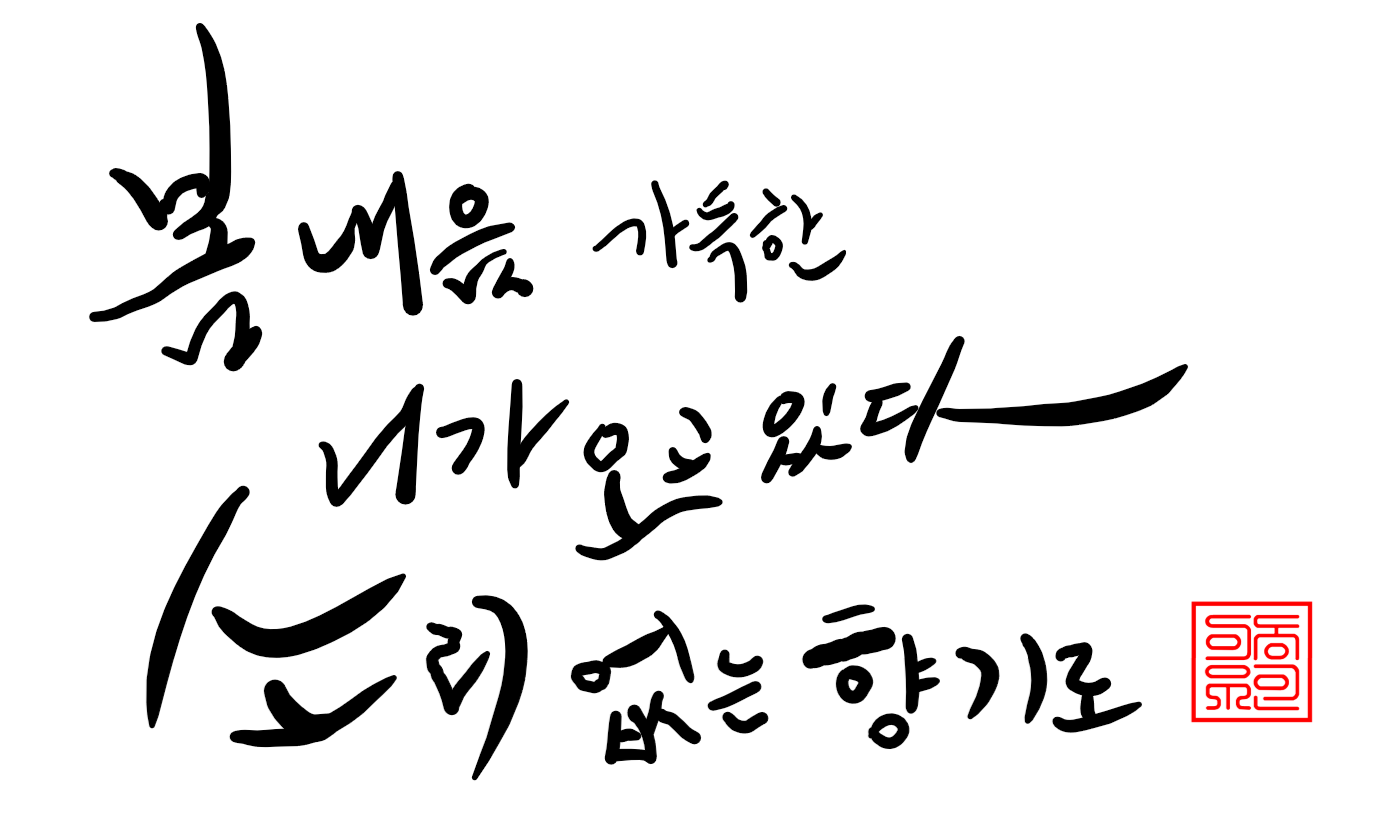 봄 내음 가득한
니가 오고 있다
소리 없는 향기로